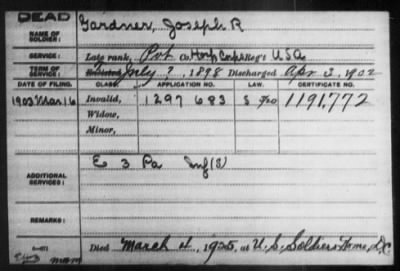 DEAD
NAME OF SOLDIER: Gardner, Joseph R
SERVICE: Late rank, Pvt Co. Hosp Corps Reg't U S A
TERM OF SERVICE: Enlisted July ?, 1898 Discharged Apr 3, 1902
DATE OF FILING. CLASS. APPLICATION NO. LAW. CERTIFICATE NO.
1903 Mar 16 Invalid, 1297683 1191,772
Widow,
Minor,
ADDITIONAL SERVICES: E 3 Pa Inf
REMARKS:
Died March 4, 1925, at U. S. Soldiers Home, D.C.